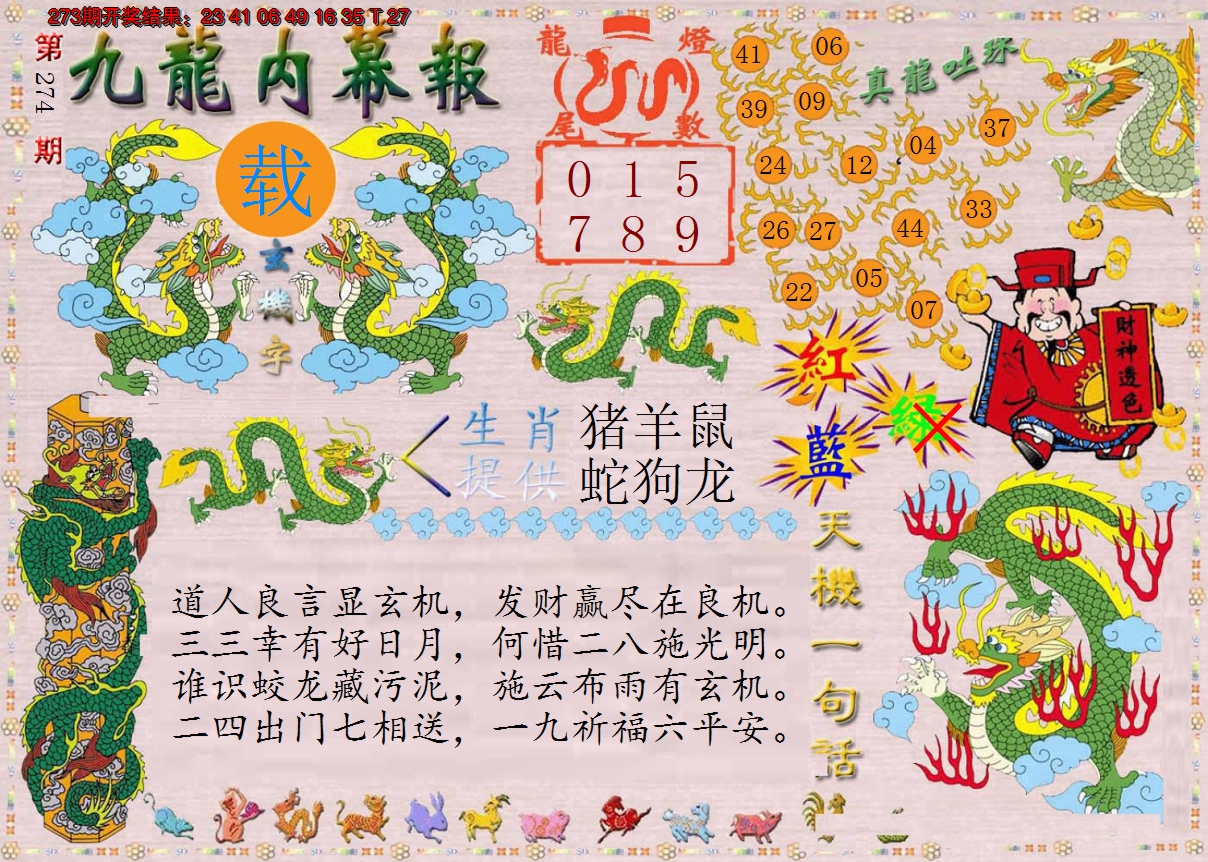 273期开奖结果：23 41 06 49 16 35 T 27
第274期
九龍内幕報
载
玄機字
龍燈尾數
0 1 5
7 8 9
真龍吐珠
41 06
39 09
24 12 04 37
26 27 44 33
22 05 07
財神透色
紅
綠
藍
生肖提供
猪羊鼠
蛇狗龙
天機一句話
道人良言显玄机，发财赢尽在良机。
三三幸有好日月，何惜二八施光明。
谁识蛟龙藏污泥，施云布雨有玄机。
二四出门七相送，一九祈福六平安。